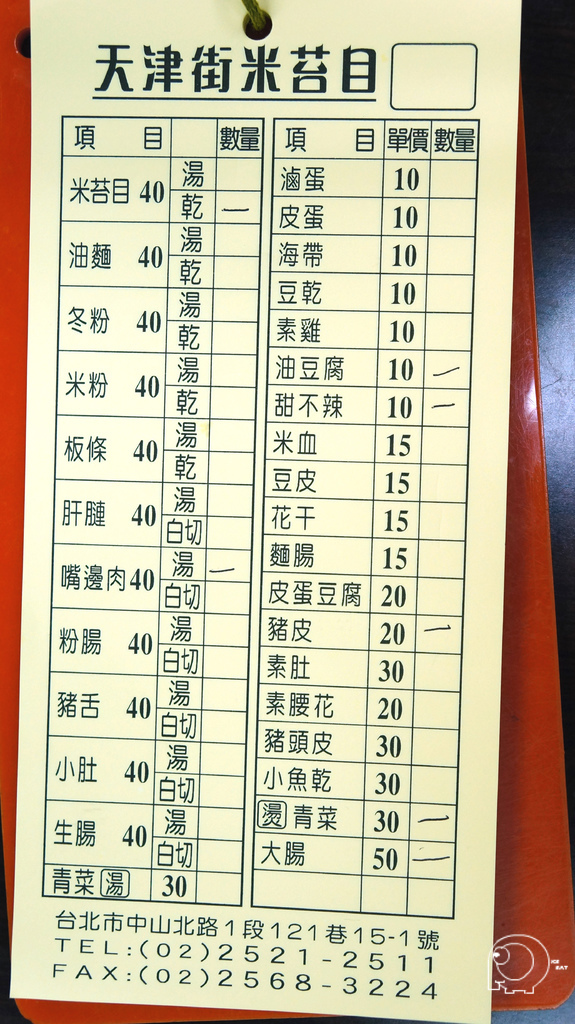 天津街米苔目
項 目 數量
米苔目 40 湯
乾 一
油麵 40 湯
乾
冬粉 40 湯
乾
米粉 40 湯
乾
板條 40 湯
乾
肝膧 40 湯
白切
嘴邊肉 40 湯 一
白切
粉腸 40 湯
白切
豬舌 40 湯
白切
小肚 40 湯
白切
生腸 40 湯
白切
青菜 湯 30
項 目 單價 數量
滷蛋 10
皮蛋 10
海帶 10
豆乾 10
素雞 10
油豆腐 10 一
甜不辣 10 一
米血 15
豆皮 15
花干 15
麵腸 15
皮蛋豆腐 20
豬皮 20 一
素肚 30
素腰花 20
豬頭皮 30
小魚乾 30
燙 青菜 30 一
大腸 50 一
台北市中山北路1段121巷15-1號
TEL:(02)2521-2511
FAX:(02)2568-3224
ICE
EAT